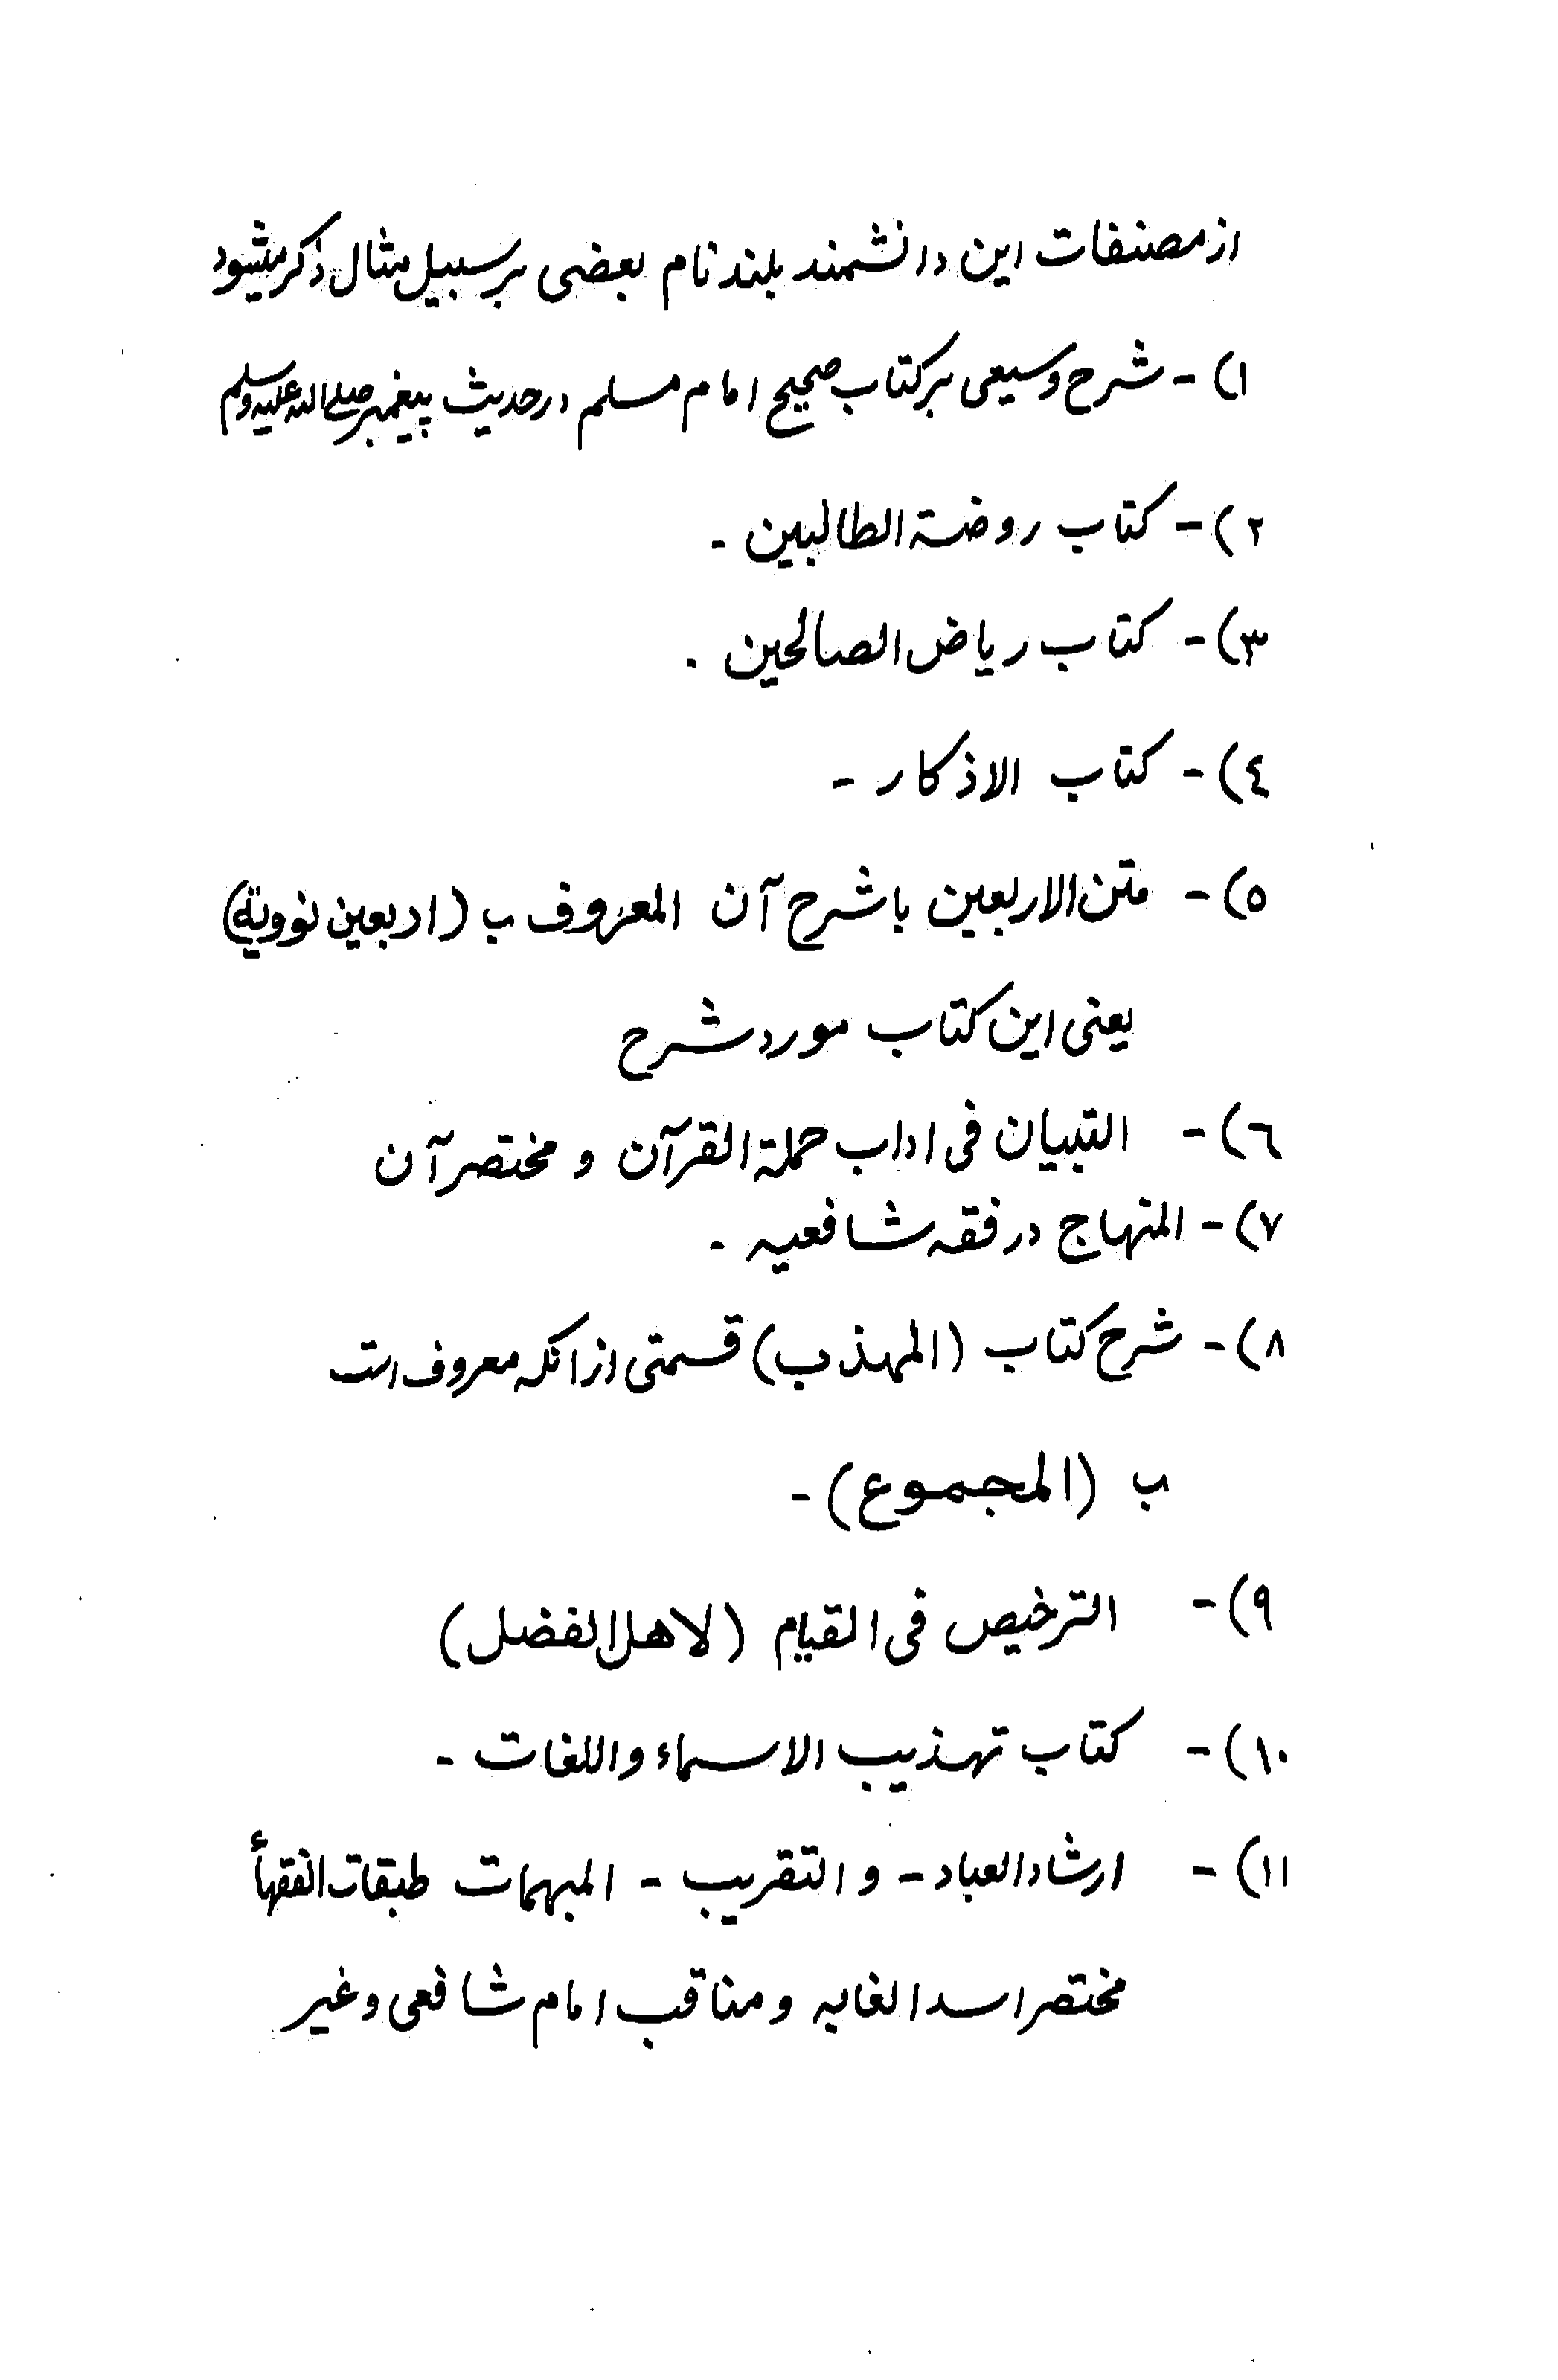 از مصنفات این دانشمند بلند نام بعضی بر سبیل مثال ذکر میشود
۱) - شرح وسیعی بر کتاب صحیح امام مسلم در حدیث پیغمبر صلی الله علیه وسلم
۲) - کتاب روضة الطالبین -
۳) - کتاب ریاض الصالحین .
٤) - کتاب الاذکار -
٥) - متن الاربعین با شرح آن المعروف ب (اربعین نوویة)
یعنی این کتاب مورد شرح
٦) - التبیان فی اداب حملة القرآن و مختصر آن
۷) - المنهاج در فقه شافعیه -
۸) - شرح کتاب (المهذب) قسمتی از انکه معروف است
ب (المجموع) -
۹) - الترخیص فی القیام (لاهل الفضل)
۱۰) - کتاب تهذیب الاسماء واللغات -
۱۱) - ارشاد العباد - و التقریب - المبهمات طبقات الفقهأ
مختصر اسد الغابه و مناقب امام شافعی و غیر